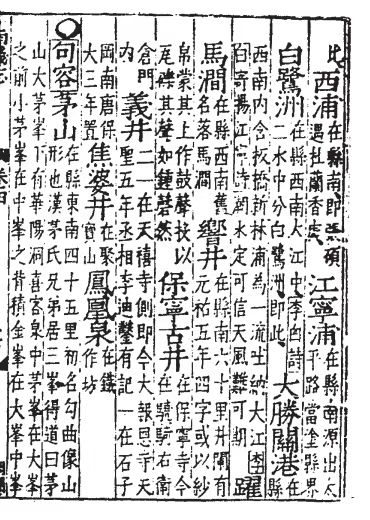 此西浦在縣南即張碩遇杜蘭香處江寧浦在縣南源出太平路當塗縣界
白鷺洲在縣西南大江中李白詩二水中分白鷺洲即此大勝關港在縣
西南內合板橋新林浦為一流吐納大江李白寄揚江寧詩潮水定可信天風難可期躍
馬澗在縣西南舊名落馬澗響井在縣南六十里井闌有元祐五年四字或以紗
帛蒙其上作鼓聲投以瓦磚其聲如鍾磬然保寧古井在保寧寺今在驍騎右南
倉門內義井二一在天禧寺側即今大報恩寺天聖五年丞相李迪鑿有記一在石子
岡南唐保大三年置焦婆井在聚寶山鳳凰泉在鐵作坊
〇句容茅山在縣東南四十五里初名勾曲像山形也漢茅氏兄弟居三峯得道曰茅
山大茅峯下有華陽洞喜客泉中茅峯在大峯之前小茅峯在中峯之背積金峯在大峯中峯